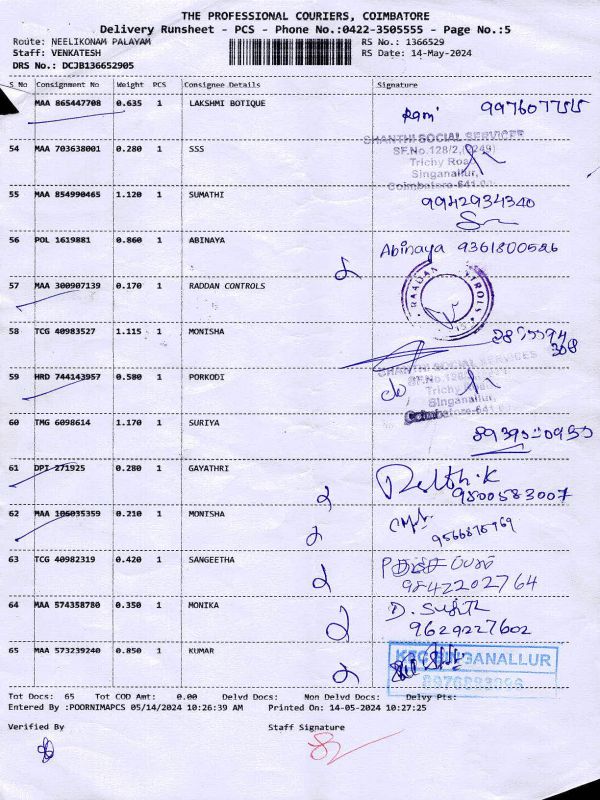 THE PROFESSIONAL COURIERS, COIMBATORE
Delivery Runsheet - PCS - Phone No.:0422-3505555 - Page No.:5
Route: NEELIKONAM PALAYAM RS No.: 1366529
Staff: VENKATESH RS Date: 14-May-2024
DRS No.: DCJB136652905
S No Consignment No Weight PCS Consignee Details Signature
MAA 865447708 0.635 1 LAKSHMI BOTIQUE Rami 9976077515
SHANTHI SOCIAL SERVICES
54 MAA 703638001 0.280 1 SSS SF.No.128/2,
Trichy Road
Singanallur,
Coimbatore-641
55 MAA 854990465 1.120 1 SUMATHI 9942934340
56 POL 1619881 0.860 1 ABINAYA Abinaya 9361800586
57 MAA 300907139 0.170 1 RADDAN CONTROLS RAADAN
58 TCG 40983527 1.115 1 MONISHA
308
SHANTHI SOCIAL SERVICES
59 HRD 744143957 0.580 1 PORKODI SF.No.
Trichy
Singanallur,
60 TMG 6098614 1.170 1 SURIYA
61 DPI 271925 0.280 1 GAYATHRI
9500583007
62 MAA 106035359 0.210 1 MONISHA
63 TCG 40982319 0.420 1 SANGEETHA
9842202764
64 MAA 574358780 0.350 1 MONIKA D. Sujith
9629227602
65 MAA 573239240 0.850 1 KUMAR SINGANALLUR
Tot Docs: 65 Tot COD Amt: 0.00 Delvd Docs: Non Delvd Docs: Delvy Pts:
Entered By :POORNIMAPCS 05/14/2024 10:26:39 AM Printed On: 14-05-2024 10:27:25
Verified By Staff Signature